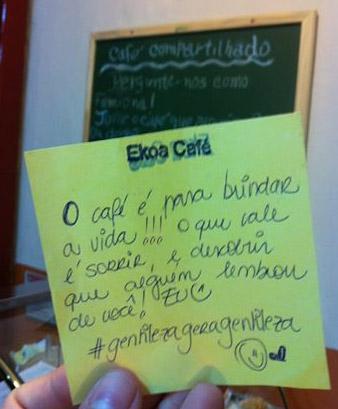 Café compartilhado
Pergunte-nos como
funciona!
Ekoa Café
O café é para brindar
a vida!!! o que vale
é sorrir, e descobrir
que alguém lembrou
de você! Eu
#gentilezageragentileza